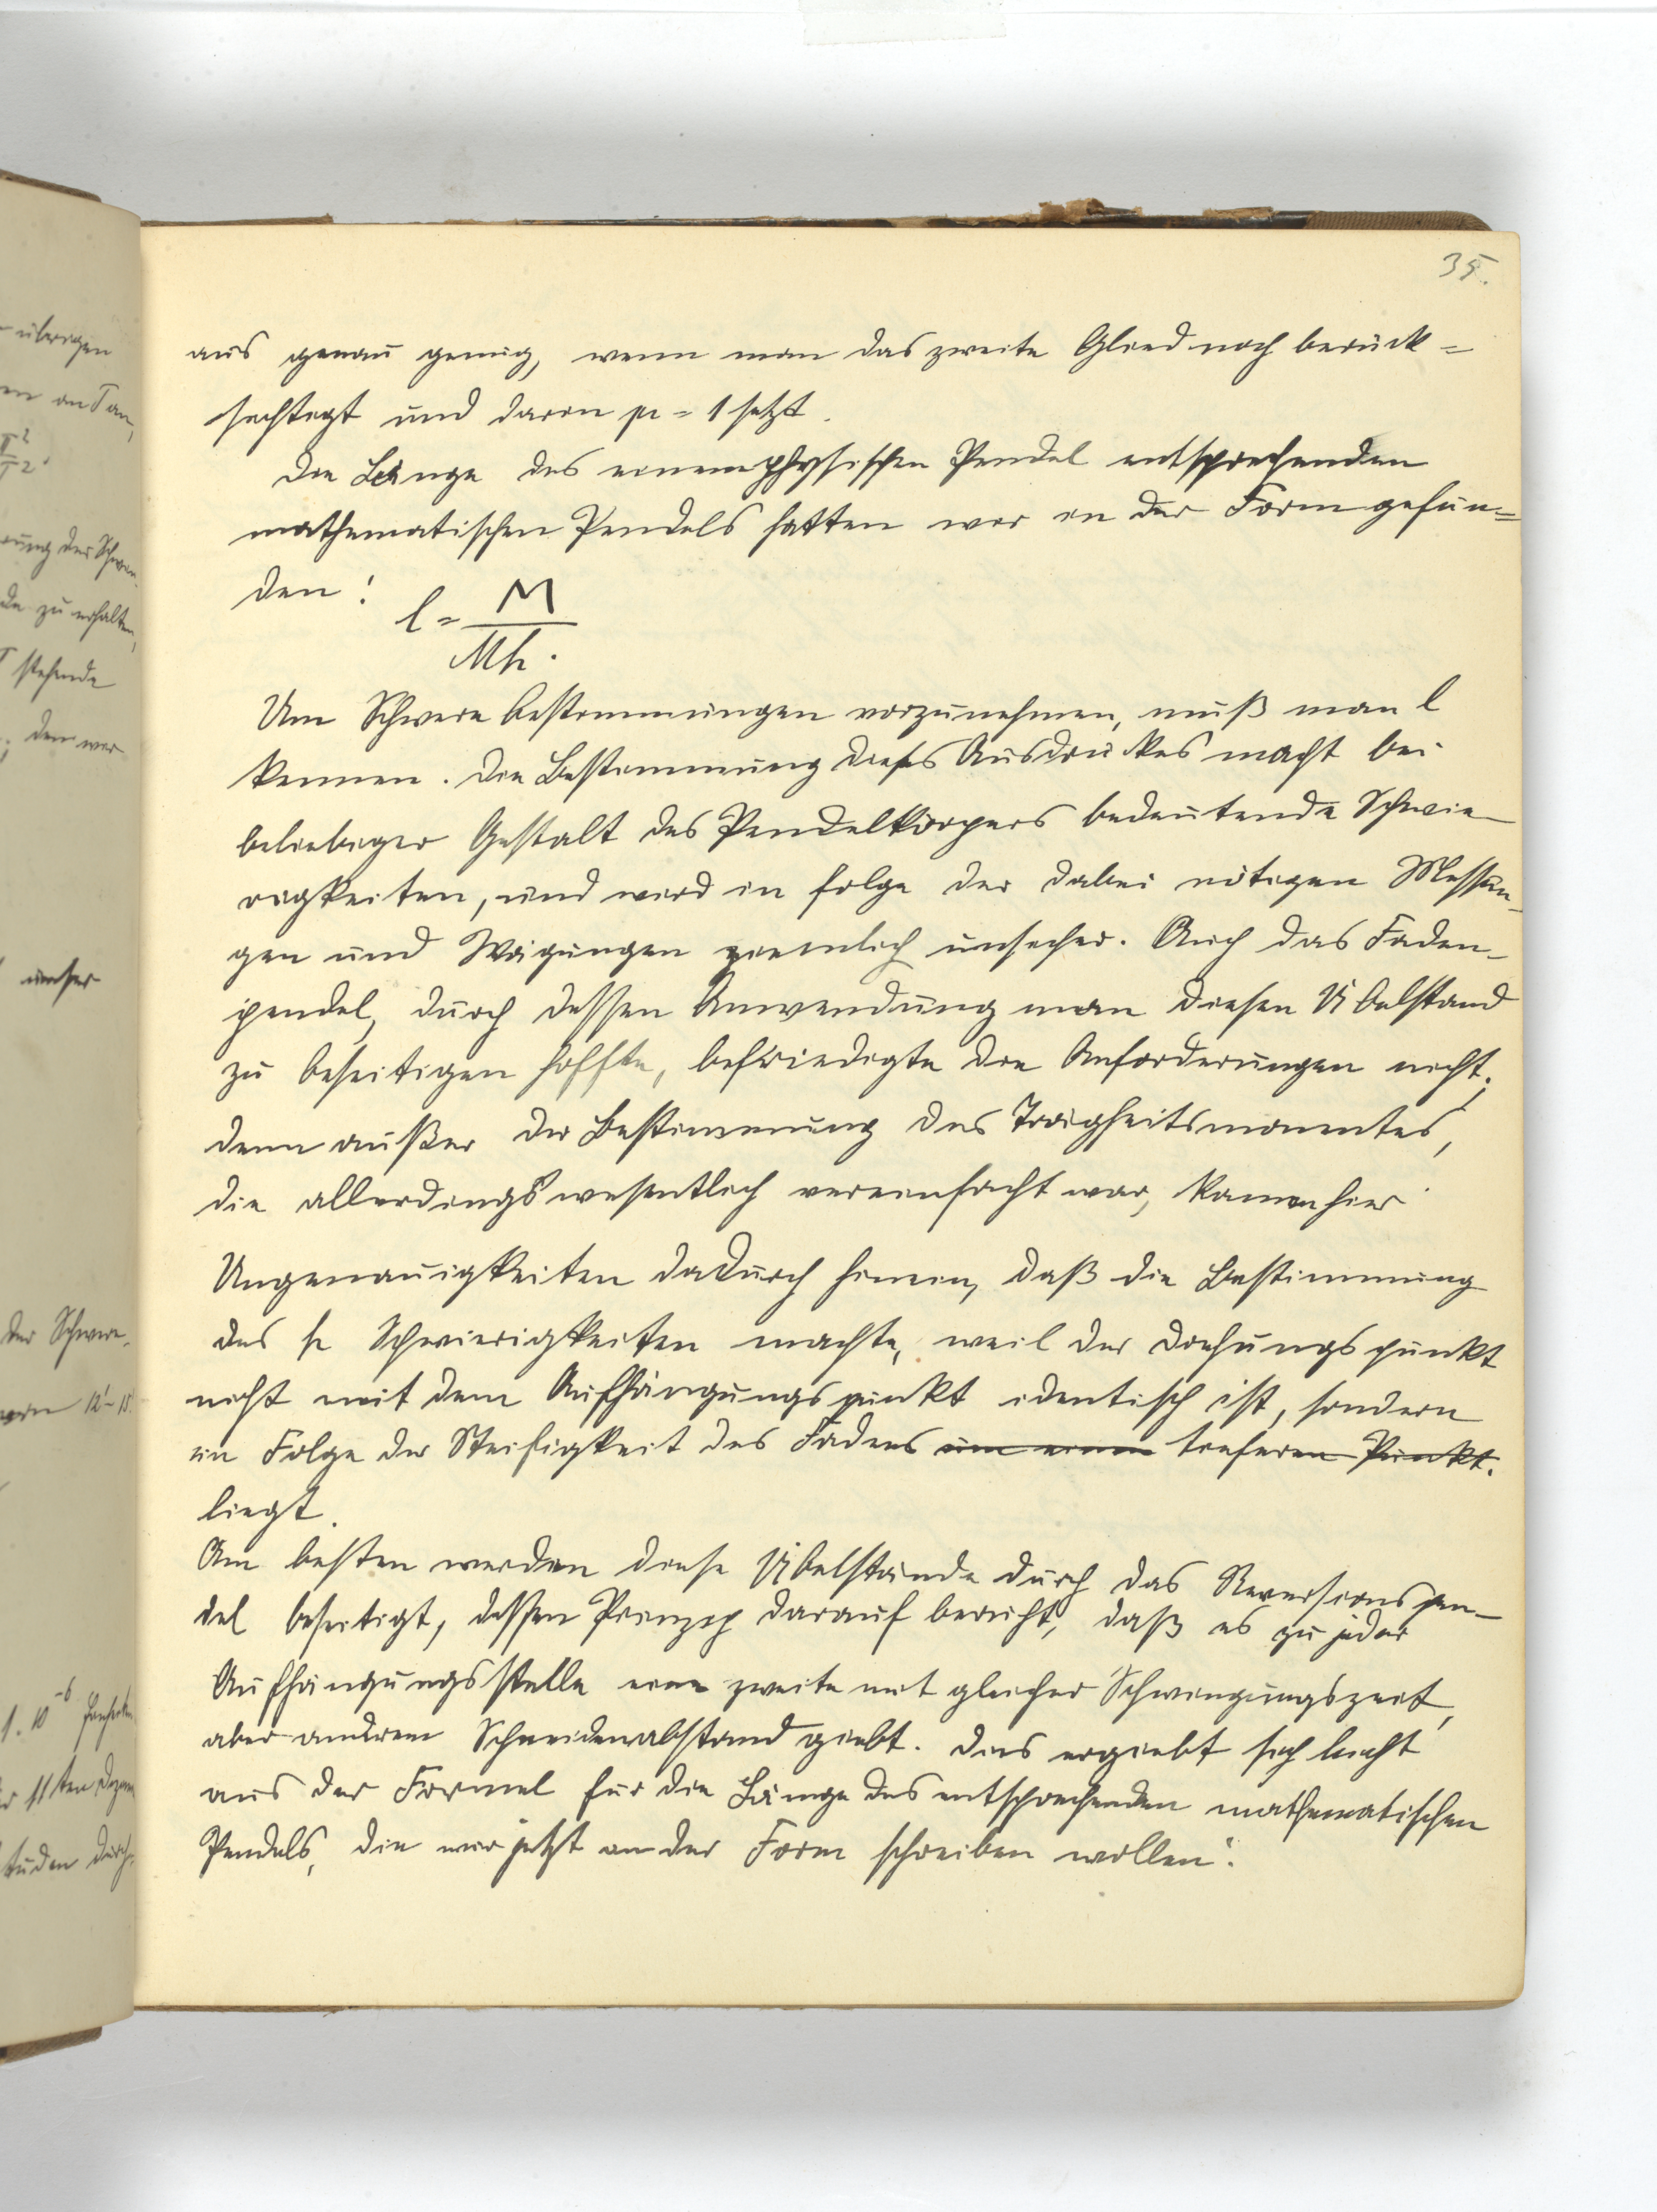 35.
aus genau genug, wenn man das zweite Glied noch berück=
sichtigt und darin μ = 1 setzt.
Die Länge des einem physischen Pendel entsprechenden
mathematischen Pendels hatten wir in der Form gefun=
den:
l = M / Mh.
Um Schwere bestimmungen vorzunehmen, muß man l
kennen. Die Bestimmung dieses Ausdruckes macht bei
beliebiger Gestalt des Pendelkörpers bedeutende Schwie-
rigkeiten, und wird in folge der dabei nötigen Messun-
gen und Wägungen ziemlich unsicher. Auch das Faden-
pendel, durch dessen Anwendung man diesen Übelstand
zu beseitigen hoffte, befriedigte die Anforderungen nicht;
denn außer der Bestimmung des Trägheitsmomentes,
die allerdings wesentlich vereinfacht war, kamen hier
Ungenauigkeiten dadurch hinein, daß die Bestimmung
des h Schwierigkeiten machte, weil der Drehungspunkt
nicht mit dem Aufhängungspunkt identisch ist, sondern
in Folge der Steifigkeit des Fadens um einen tieferen Punkt.
liegt.
Am besten werden diese Übelstände durch das Reversionspen-
del beseitigt, dessen Prinzip darauf beruht, daß es zu jeder
Aufhängungsstelle eine zweite mit gleicher Schwingungszeit,
aber anderem Schneidenabstand giebt. Dies ergiebt sich leicht
aus der Formel für die Länge des entsprechenden mathematischen
Pendels, die wir jetzt in der Form schreiben wollen:
übrigen
an
π²
T²
der
zu erhalten,
stehende
den wir
unser
der Schwere-
12-15
1. 10⁻⁶
11ten